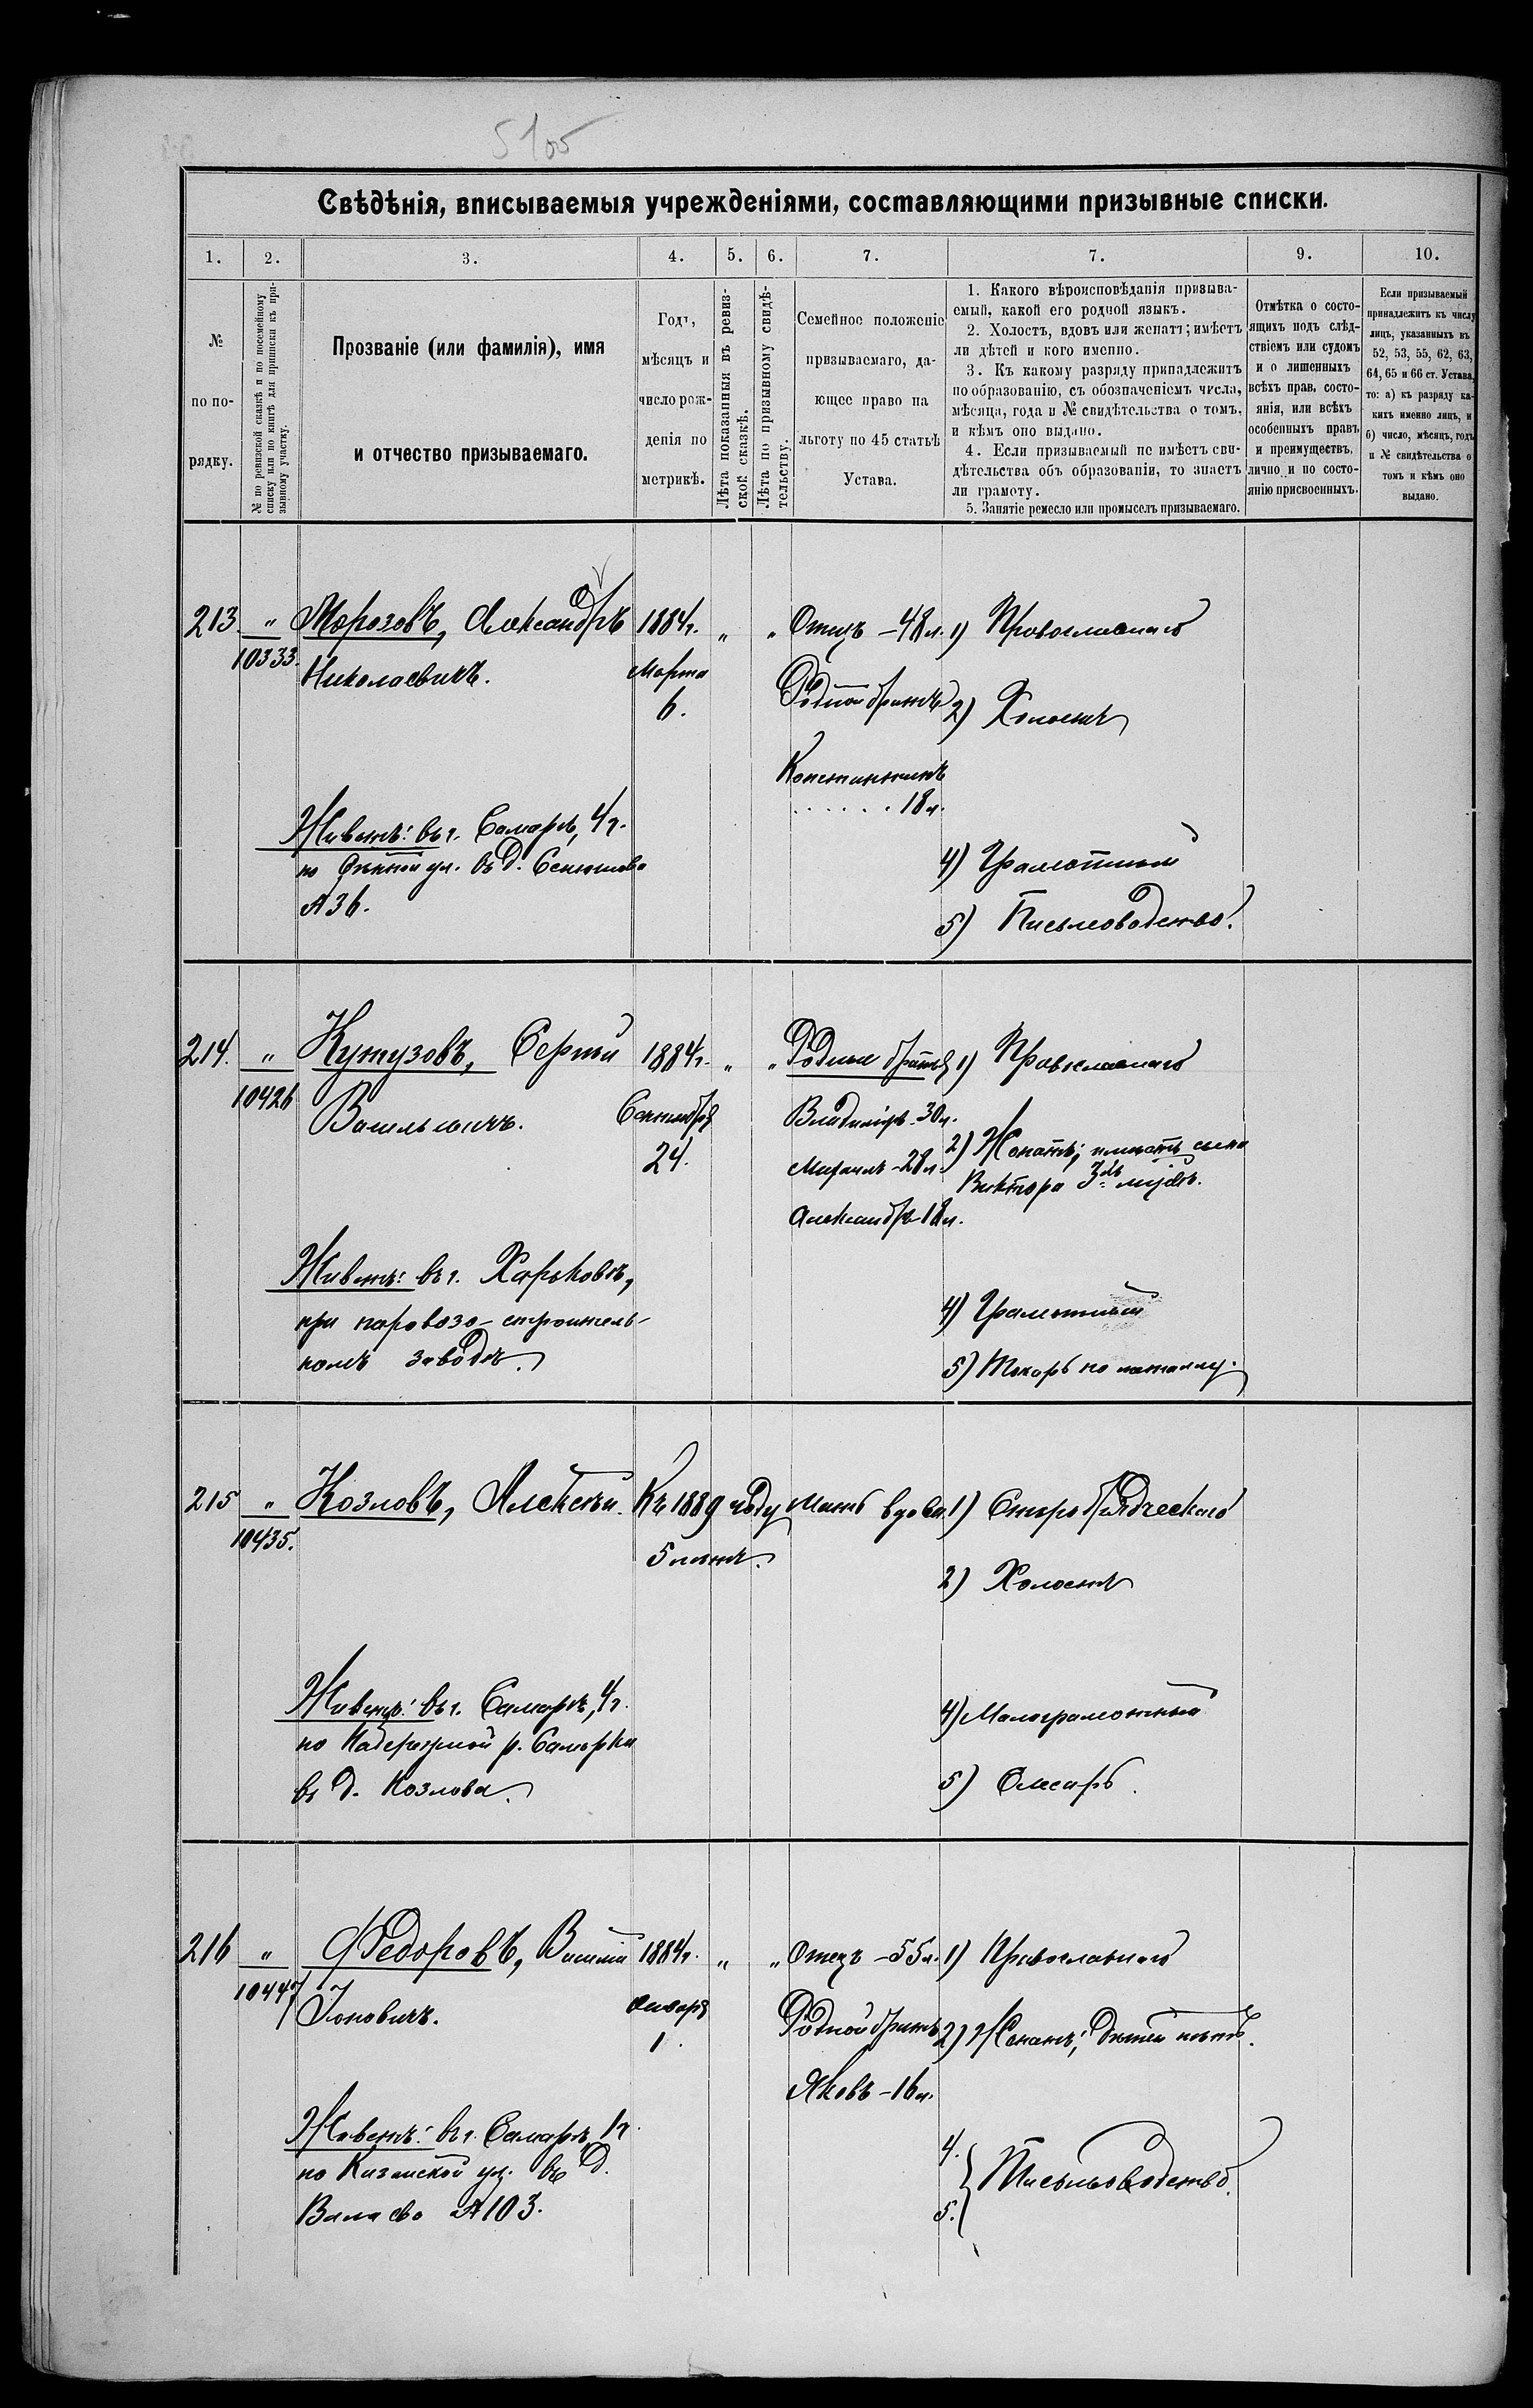 5105
Свѣдѣнія, вписываемыя учрежденіями, составляющими призывные списки.
1. 2. 3. 4. 5. 6. 7. 7. 9. 10.
№
по по-
рядку.
№ по ревизской сказкѣ и по посемейному
списку или по книгѣ для приписки къ при-
зывному участку.
Прозваніе (или фамилія), имя
и отчество призываемаго.
Годъ,
мѣсяцъ и
число рож-
денія по
метрикѣ.
Лѣта показанныя въ ревиз-
ской сказкѣ.
Лѣта по призывному свидѣ-
тельству.
Семейное положеніе
призываемаго, да-
ющее право на
льготу по 45 статьѣ
Устава.
1. Какого вѣроисповѣданія призыва-
емый, какой его родной языкъ.
2. Холостъ, вдовъ или женатъ; имѣетъ
ли дѣтей и кого именно.
3. Къ какому разряду принадлежитъ
по образованію, съ обозначеніемъ числа,
мѣсяца, года и № свидѣтельства о томъ,
и кѣмъ оно выдано.
4. Если призываемый не имѣетъ сви-
дѣтельства объ образованіи, то знаетъ
ли грамоту.
5. Занятіе ремесло или промыселъ призываемаго.
Отмѣтка о состо-
ящихъ подъ слѣд-
ствіемъ или судомъ
и о лишенныхъ
всѣхъ прав, состо-
янія, или всѣхъ
особенныхъ правъ
и преимуществъ,
лично и по состо-
янію присвоенныхъ.
Если призываемый
принадлежитъ къ числу
лицъ, указанныхъ въ
52, 53, 55, 62, 63,
64, 65 и 66 ст. Устава,
то: а) къ разряду ка-
кихъ именно лицъ, и
б) число, мѣсяцъ, годъ
и № свидѣтельства о
томъ и кѣмъ оно
выдано.
213. "
10333.
Морозовъ, Александръ
Николаевичъ.
Живетъ: въ г. Самарѣ, 4 ч.
по ул. въ д.
№ 36.
1884 г.
Марта
6.
" "
Отецъ - 48 л.
Родной братъ
Константинъ
. . . . . . 18 л.
1) Православнаго
2) Холостъ
4) Грамотный
5) Письмоводство.
214. "
10426
Кутузовъ, Сергѣй
Васильевичъ.
Живетъ: въ г. Харьковѣ,
при паровозо-строитель-
номъ заводѣ.
1884 г.
Сентября
24.
" "
Родные братья
Владиміръ - 30 л.
Михаилъ - 28 л.
Александръ - 18 л.
1) Православнаго
2) Женатъ; имѣетъ сына
Виктора 3хъ мѣсяц.
4) Грамотный
5) Токарь по металлу.
215 "
10435.
Козловъ, Алексѣй.
Живетъ: въ г. Самарѣ, 4 ч.
по Набережной р. Самарки
въ д. Козлова.
Къ 1889 году
5 лѣтъ.
Мать вдова.
1) Старообрядческаго
2) Холостъ
4) Малограмотный
5) Слесарь.
216 "
10447
Ѳедоровъ, Василій
Іоновичъ.
Живетъ: въ г. Самарѣ, 1 ч.
по Казанской ул. въ д.
№ 103.
1884 г.
Января
1.
" "
Отецъ - 55 л.
Родной братъ
Яковъ - 16 л.
1) Православнаго
2) Женатъ; дѣтей нѣтъ.
4.
5. Письмоводство.